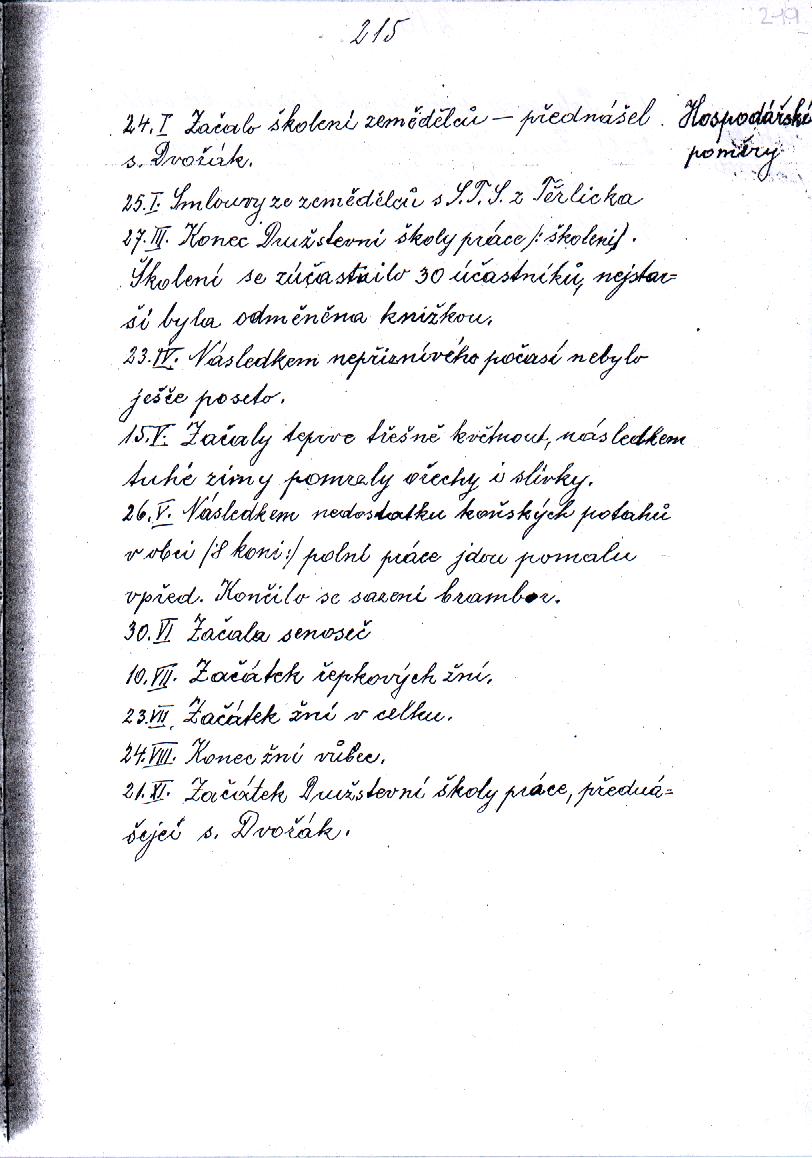 219
215
24.I Začalo školení zemědělců — přednášel
s. Dvořák.
Hospodářské
poměry
25.I. Smlouvy ze zemědělců s S.T.S. z Těrlicka
27.III. Konec Družstevní školy práce /: školení/.
Školení se zúčastnilo 30 účastníků, nejstar=
ší byla odměněna knížkou.
23.IV. Následkem nepříznivého počasí nebylo
ješče poseto.
15.V. Začaly teprve třešně květnout, následkem
tuhé zimy pomrzly ořechy i slívky.
26.V. Následkem nedostatku koňských potahů
v obci /8 koni:/ polní práce jdou pomalu
vpřed. Končilo se sazení brambor.
30.VI Začala senoseč
10.VII. Začátek řepkových žní.
23.VII. Začátek žní v celku.
24.VIII. Konec žní vůbec.
21.XI. Začátek Družstevní školy práce, předná=
šejcí s. Dvořák.